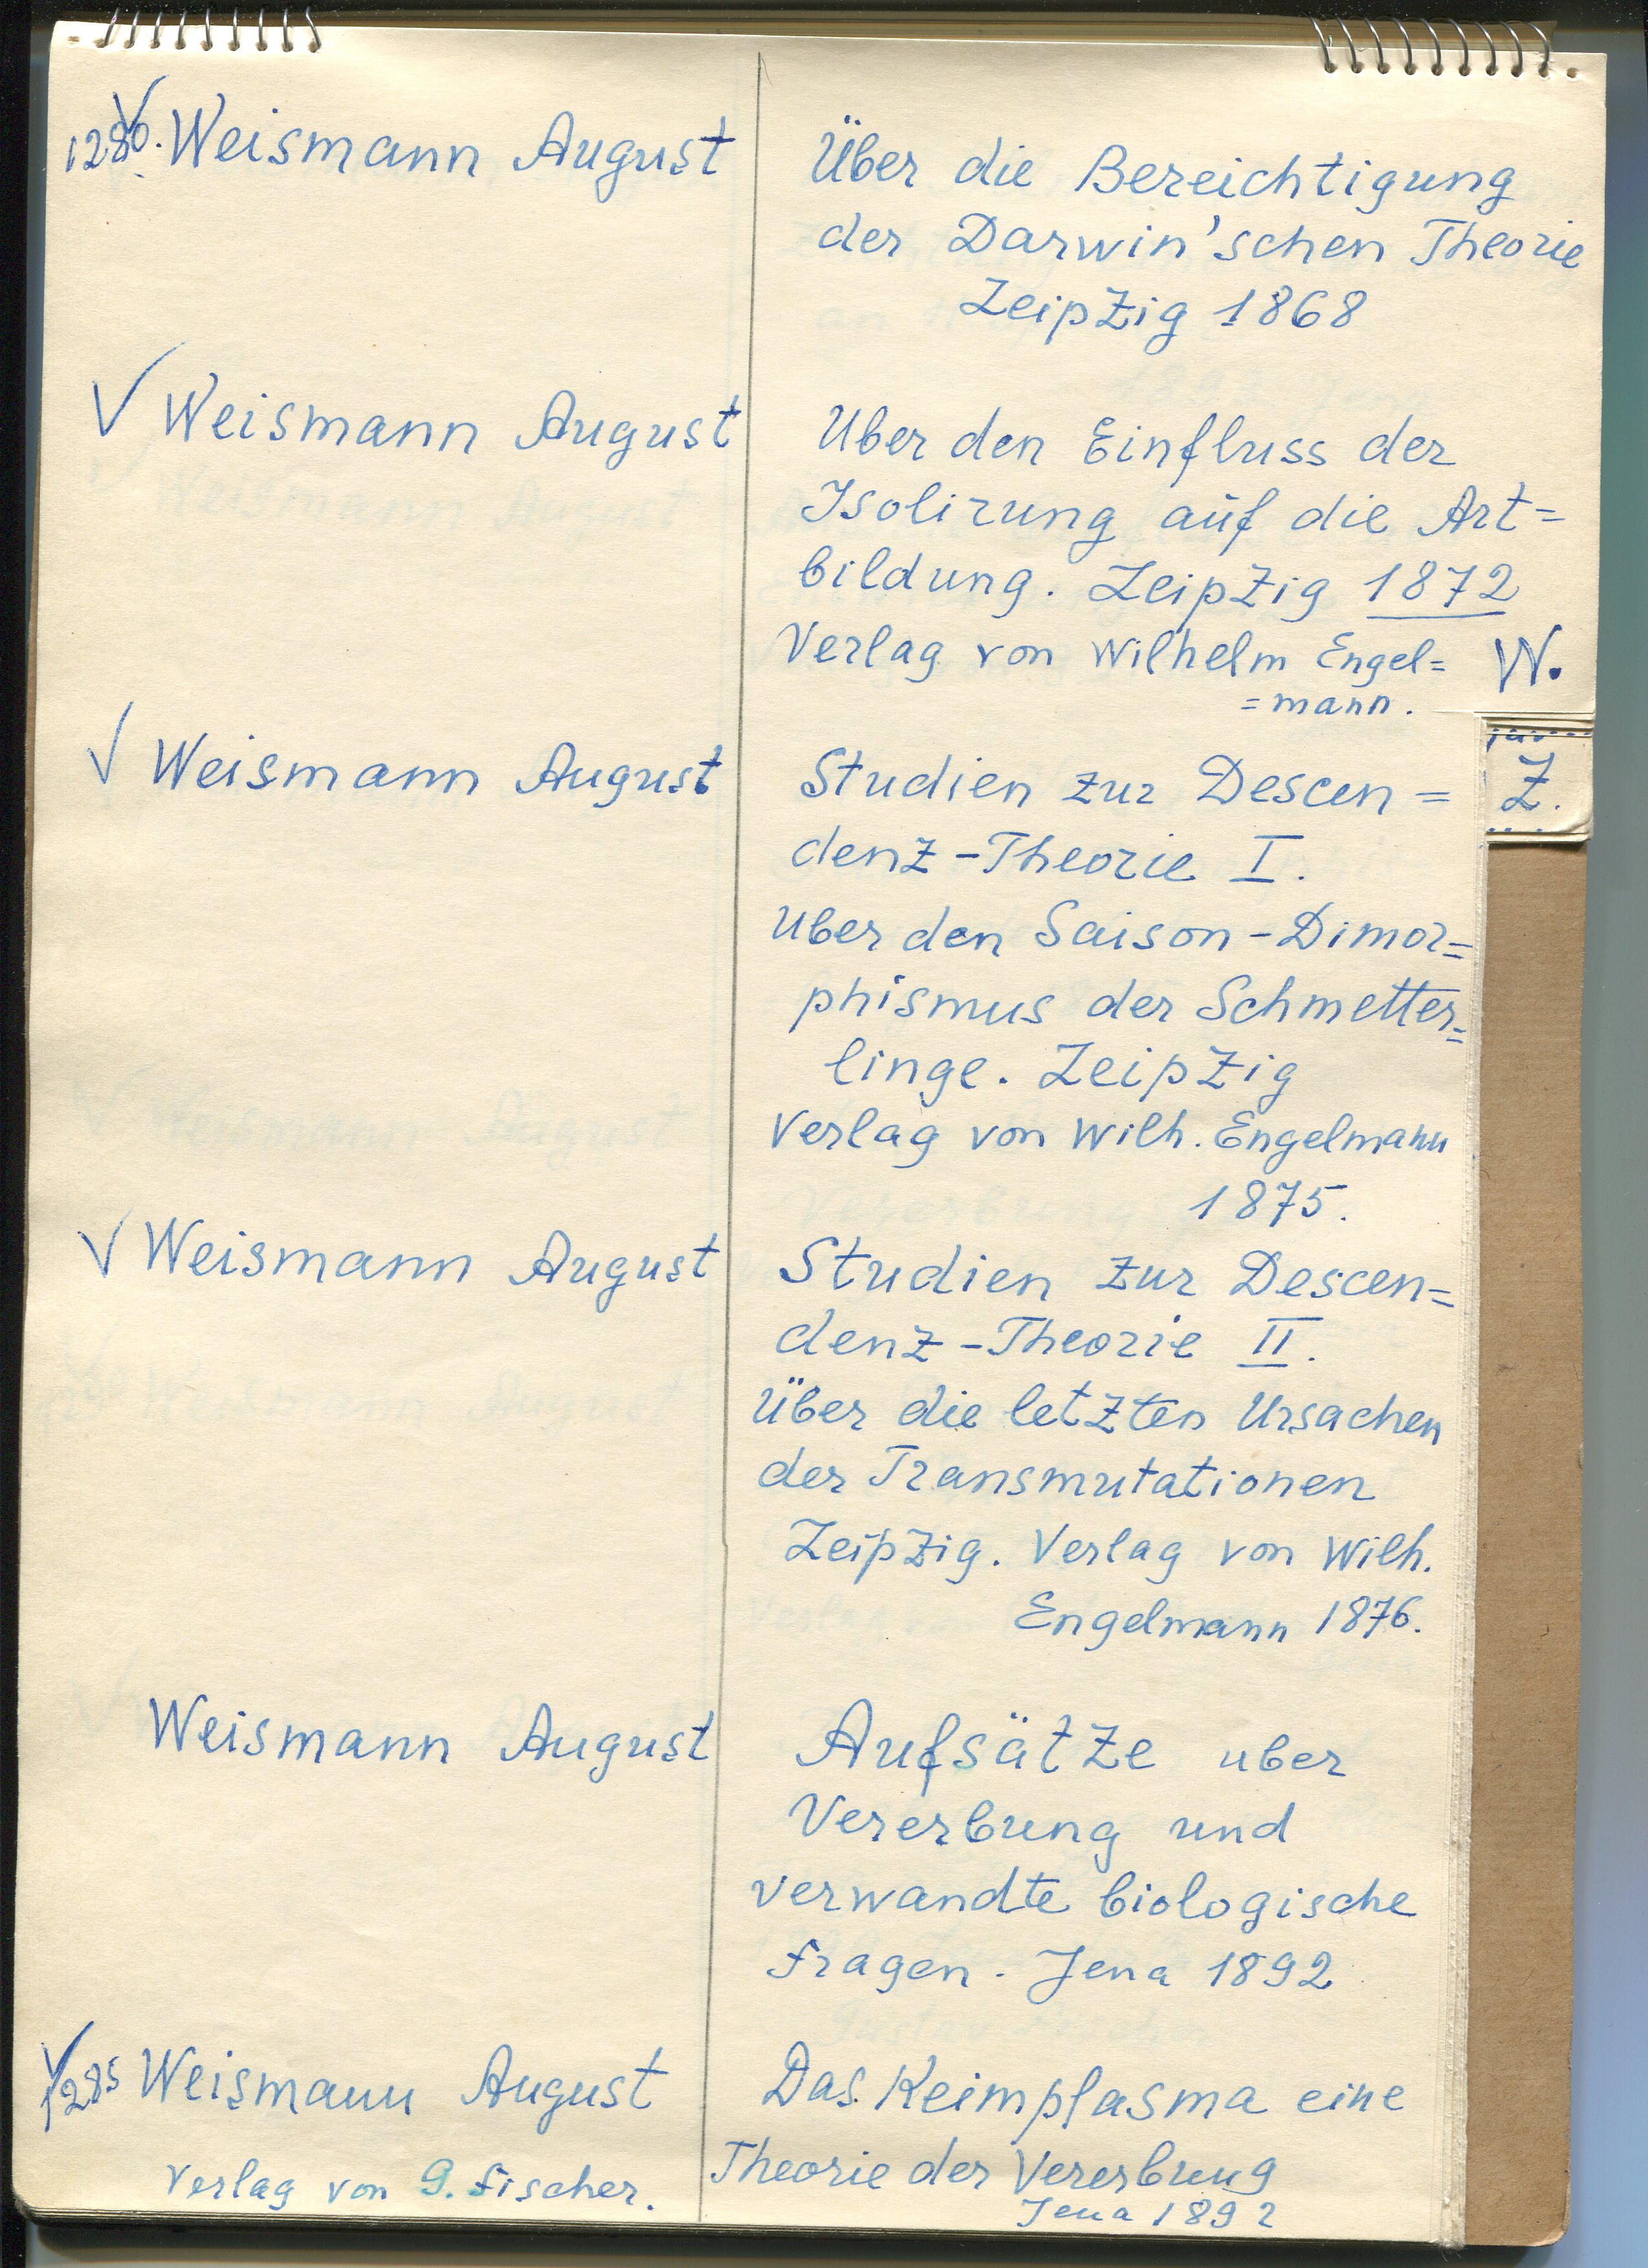 1286. Weismann August
Über die Bereichtigung
der Darwin'schen Theorie
Leipzig 1868
√ Weismann August
Uber den Einfluss der
Isolirung auf die Art=
bildung. Leipzig 1872
Verlag von Wilhelm Engel=
=mann.
W.
√ Weismann August
Studien zur Descen=
Z.
denz-Theorie I.
Uber den Saison-Dimor=
phismus der Schmetter=
linge. Leipzig
Verlag von Wilh. Engelmann
1875.
√ Weismann August
Studien zur Descen=
denz-Theorie II.
Über die letzten Ursachen
der Transmutationen
Leipzig. Verlag von Wilh.
Engelmann 1876.
Weismann August
Aufsätze uber
Vererbung und
verwandte biologische
Fragen. Jena 1892
√ 1285 Weismann August
Verlag von G. Fischer.
Das Keimplasma eine
Theorie der Vererbung
Jena 1892